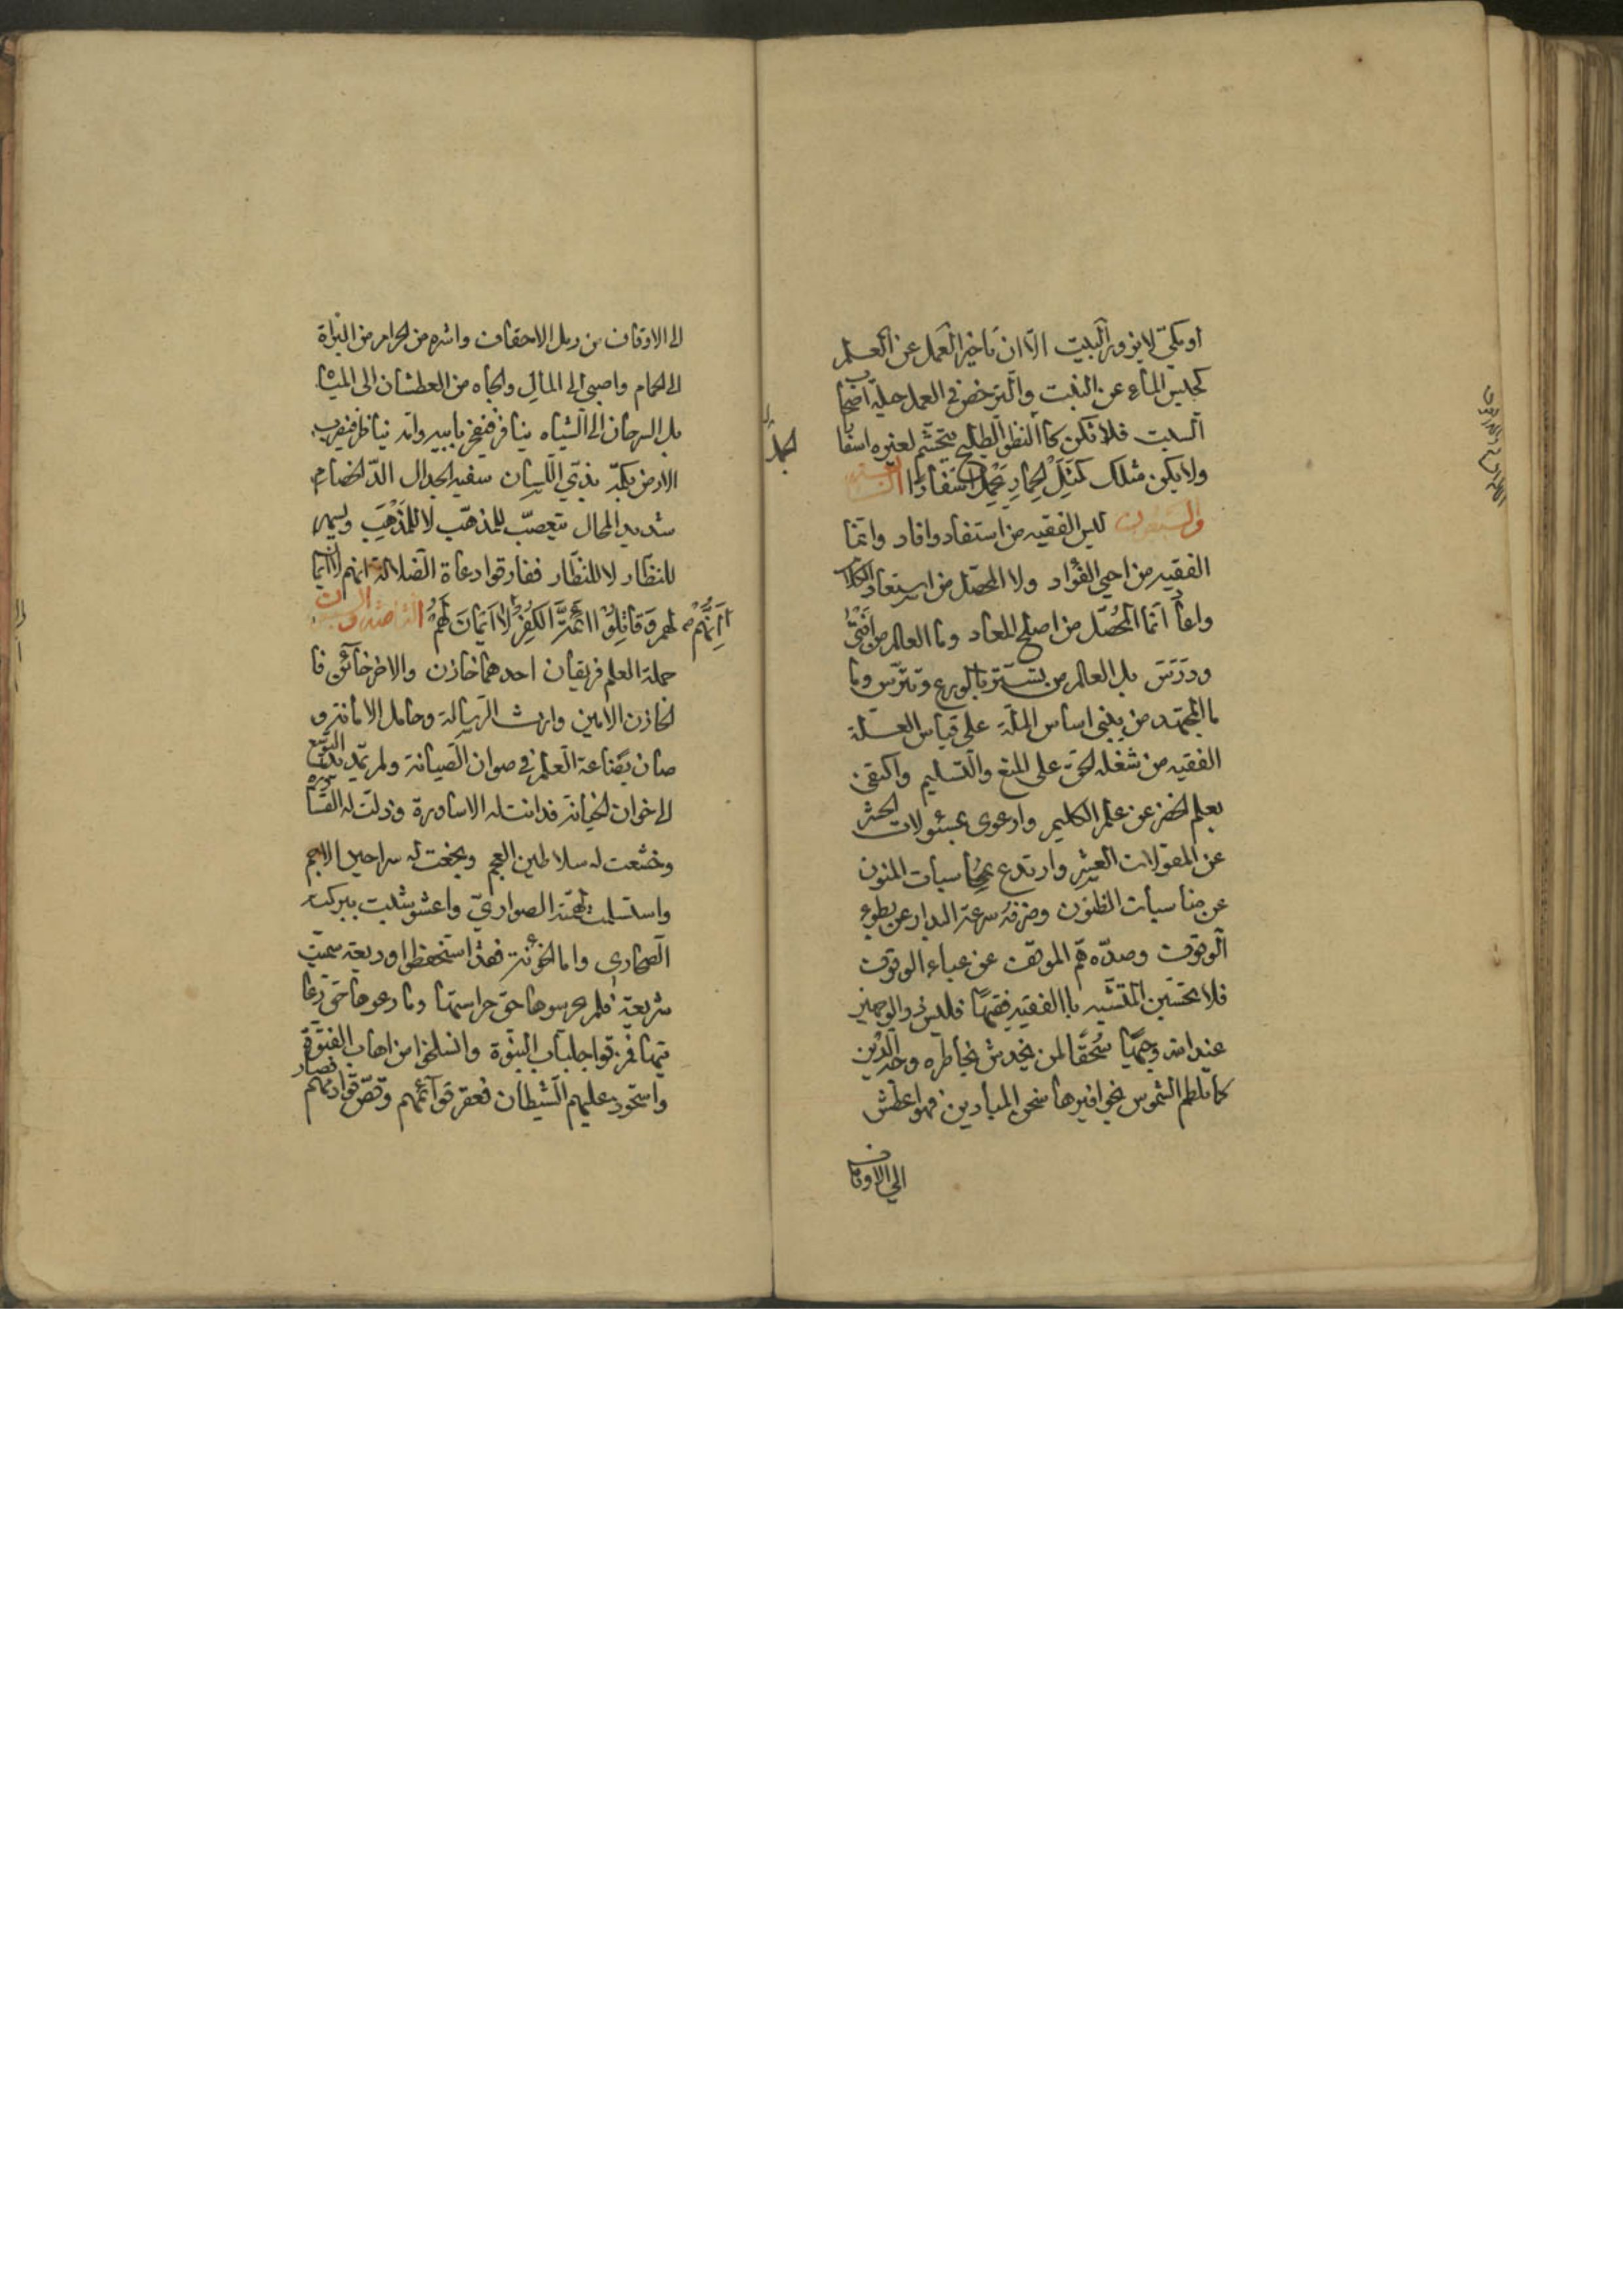 او مكيّ لا يزور البيت الا ان تاخير العمل عن العلم
كحبس الماء عن النبت والترخص في العمل حيلة اصحاب
السبت فلا تكن كالنظو الطليح يتجشم لغيره اسفارا
ولا يكن مثلك كَمَثَلِ الْحِمَارِ يَحْمِلُ اَسْفَارًا
والستون ليس الفقيه من استفاد وافاد وانما
الفقيه من احيى الفؤاد ولا المحصّل من استعاد الكلام
واعاد انما المحصّل من اصلح المعاد وما العالم من افتى
ودرّس بل العالم من تستّر بالورع وتترّس وما
ما المجتهد من يبني اساس الملّة على قياس العلّة
الفقيه من شغله الحق على المنع والتسليم واكتفى
بعلم الخضر عن علم الكليم وارعوى بمسئولات الحشر
عن المقولات العشر وارتدع بمحاسبات المنون
عن مناسبات الظنون وضرفه سرعة البدار عن بطوء
الوقوف وصدّه همّ الموقف عن عباء الوقوف
فلا تحسبنّ المتشبه بالفقيه فقيهًا فليس ذو الوجهين
عند الله وجيهًا سُحْقًا لمن يخدش بخاطره وجه الدين
كما تلطم الشموس بحوافيرها صحن الميادين فهو اعطش
الى الاوقاف
الى الاوقاف من رمل الاحقاف واشره من الحرام من البزاة
الى الحمام واصبى الى المال والجاه من العطشان الى المياه
بل السرحان الى الشياه ينافر فيفخر بابيه وامه يناظر فيضرب
الارض بكمّه بذيّ اللسان سفيه الجدال الدّ الخصام
شديد المحال يتعصّب للمذهَب لا للمذهب ويسهر
للنضار لا للنظّار ففارقوا دعاة الضلالة انهم لا ايمان
لهم وَقَاتِلُوْا اَئِمَّةَ الْكُفْرِ اِنَّهُمْ لَا اَيْمَانَ لَهُمْ
حملة العلم فريقان احدهما خازن والاخر خائن فا
لخازن الامين وارث الرسالة وحامل الامانة و
صان بضاعة العلم في صوان الصيانة ولم يمد يد التوسّع
الى خوان الخيانة فدانت له الاساورة وذلّت له القساورة
وخشعت له سلاطين العجم وبخعت له سراحين الاجم
واستسلمت لهمته الصواري واعشوشبت ببركته
الصحارى واما الخونة فقد استحفظوا وديعة سميت
شريعة فلم يحرسوها حق حراستها وما رعوها حق رعا
يتها فمزقوا جلباب النبوّة وانسلخوا من اهاب الفتوّة
واستحوذ عليهم الشيطان فعقر قوآئمهم وقصّ قوادمهم